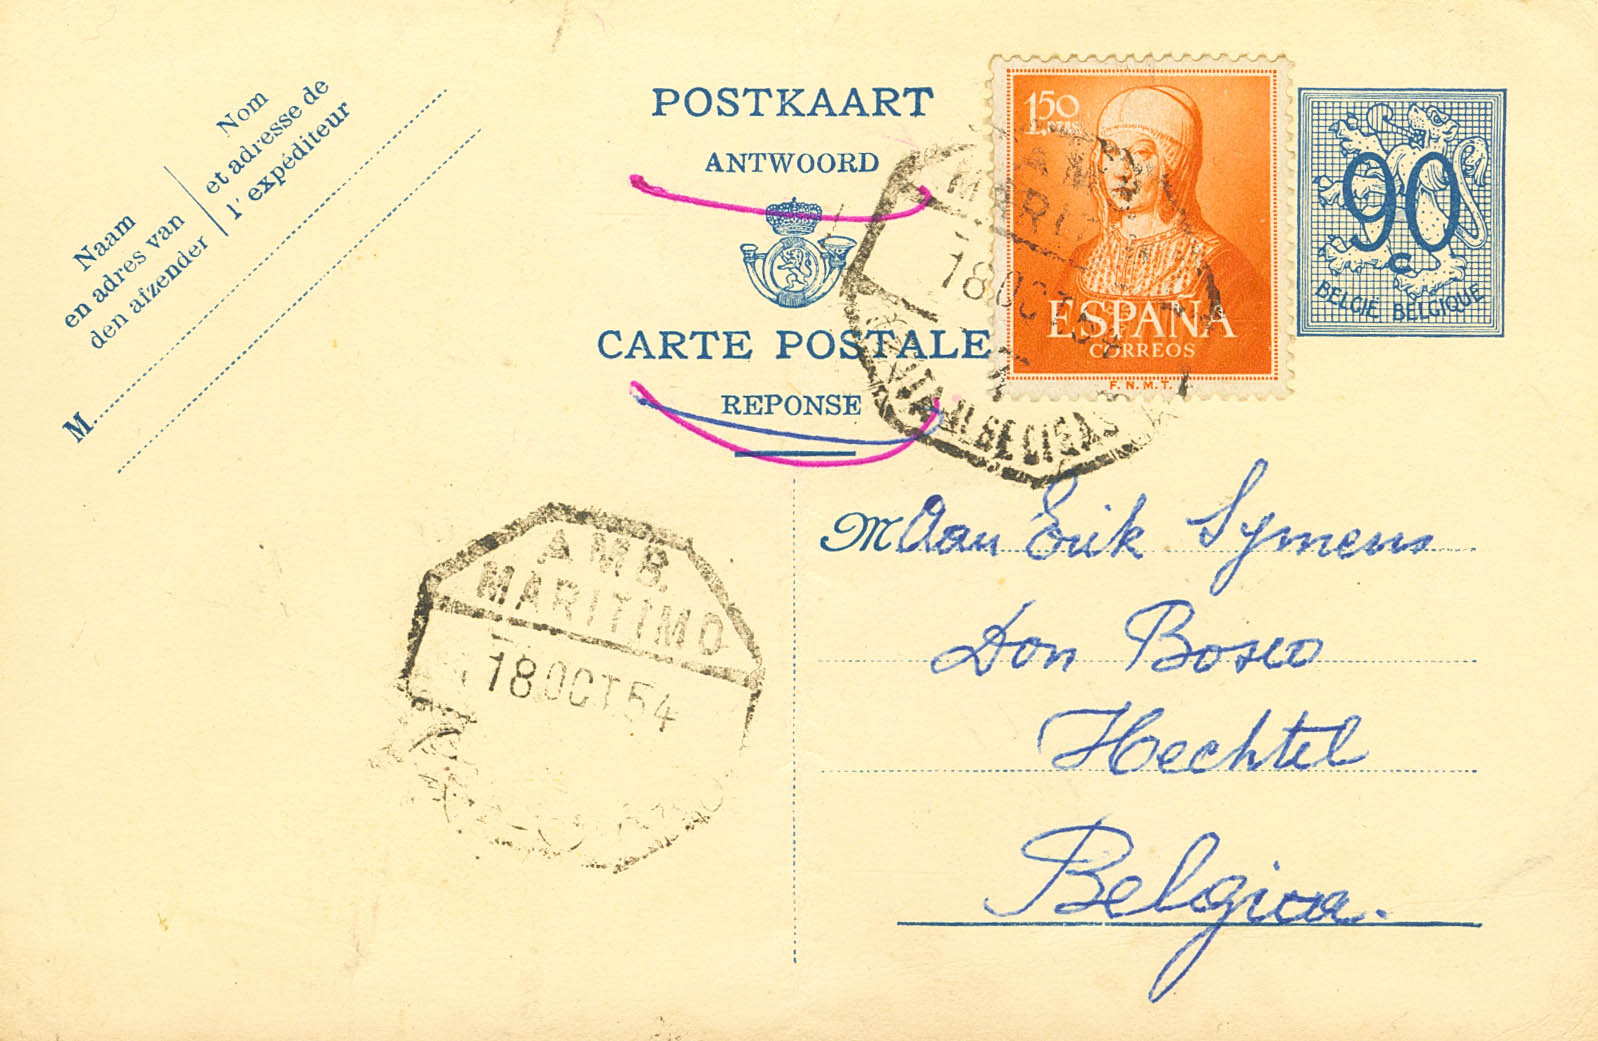 Naam
en adres van
den afzender
Nom
et adresse de
l'expéditeur
M
POSTKAART
ANTWOORD
CARTE POSTALE
REPONSE
1,50
PTAS
ESPAÑA
CORREOS
F. N. M. T.
90
c
BELGIË BELGIQUE
AMB.
MARITIMO
18 OCT 54
STA. M. BECIBAS
AMB.
MARITIMO
18 OCT 54
M Aan Erik Symens
Don Bosco
Hechtel
Belgica.